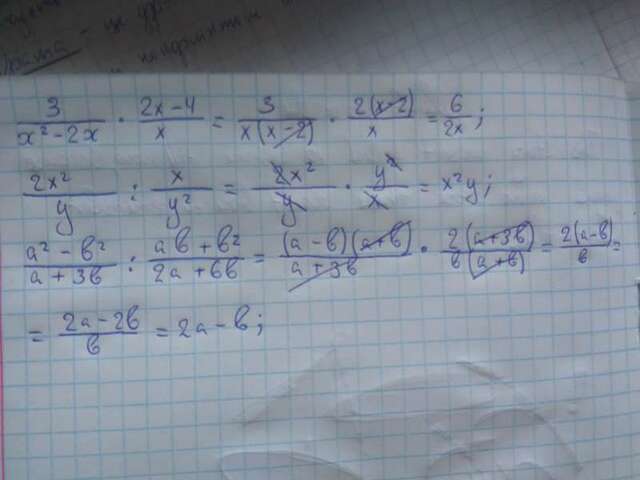 3/(x² - 2x) · (2x - 4)/x = 3/(x(x - 2)) · 2(x - 2)/x = 6/(2x);
2x²/y : x/y² = 2x²/y · y²/x = x²y;
(a² - b²)/(a + 3b) : (ab + b²)/(2a + 6b) = (a - b)(a + b)/(a + 3b) · 2(a + 3b)/(b(a + b)) = 2(a - b)/b =
= (2a - 2b)/b = 2a - b;